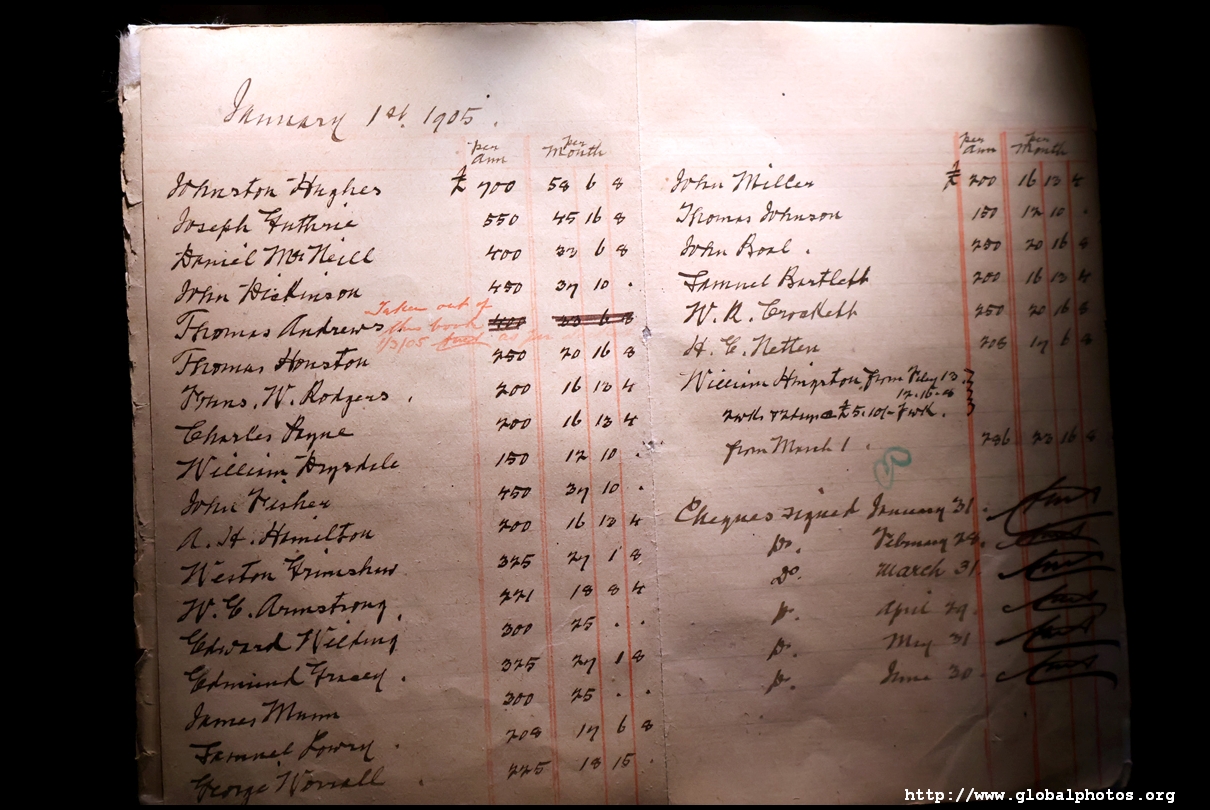 January 1st. 1905.
per Ann per Month
Johnston Hughes £ 700 58 6 8
Joseph Guthrie 550 45 16 8
Daniel McNeill 400 33 6 8
John Dickinson 450 37 10 .
Taken out of
Thomas Andrews 400 33 6 8
this book
1/3/05 as per
Thomas Houston 250 20 16 8
Johns. W. Rodgers . 200 16 13 4
Charles Payne 200 16 13 4
William Drysdale 150 12 10 .
John Fisher 450 37 10 .
A. H. Hamilton 200 16 13 4
Weston Grimshaw 325 27 1 8
W. C. Armstrong. 221 18 8 4
Edward Wilding. 300 25 . .
Edmund Gracey . 325 27 1 8
James Munn 300 25 . .
Samuel Lowry . 208 17 6 8
George Worrall . 225 18 15 .
per Ann per Month
John Miller £ 200 16 13 4
Thomas Johnson 150 12 10 .
John Boal . 250 20 16 8
Samuel Bartlett 200 16 13 4
W. R. Crockett 250 20 16 8
H. C. Netten 208 17 6 8
William Hingston from Feby 13.
12.16.8
2wks & 2days @ £5.10/- P wk.
from March 1 . 286 23 16 8
Cheques signed January 31.
Do. February 28.
Do. March 31.
Do. April 29.
Do. May 31
Do. June 30.
http://www.globalphotos.org